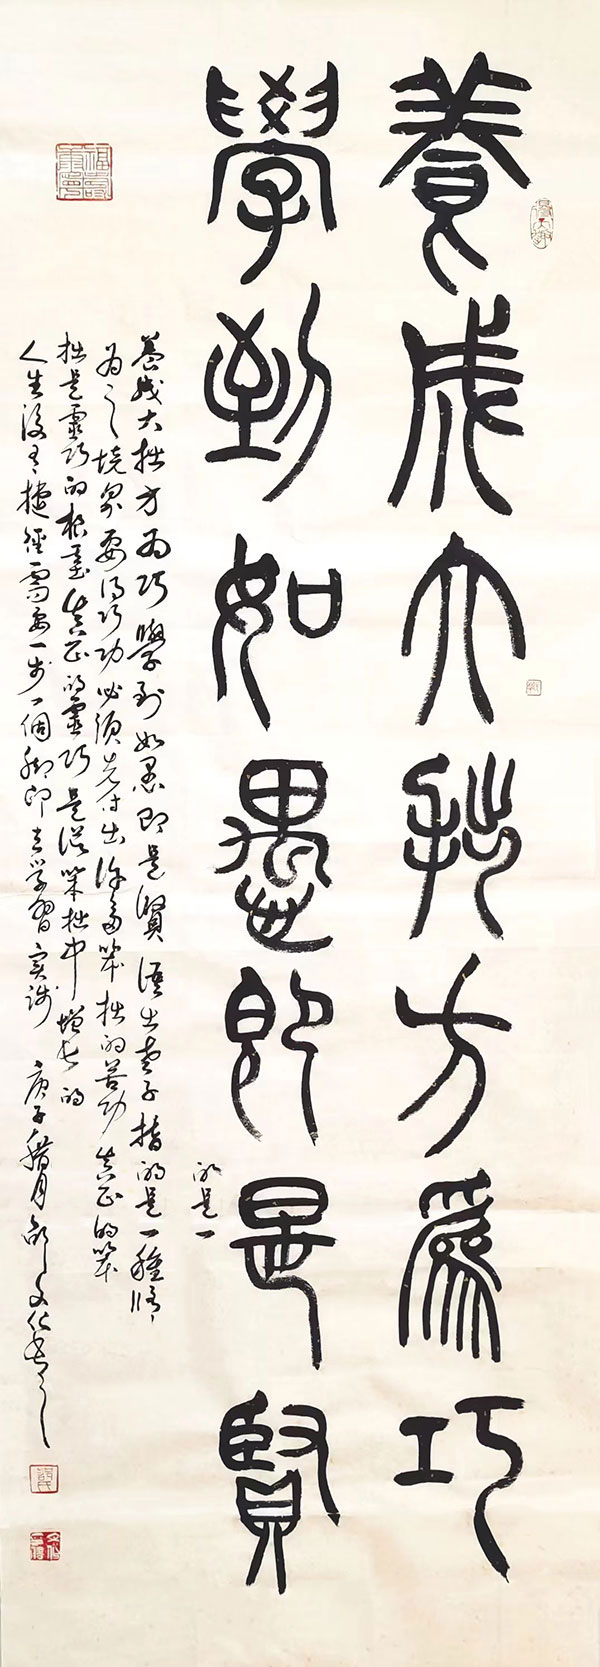 養成大拙方為巧
學到如愚即是賢
养成大拙方为巧學到如愚即是賢语出老子指的是一種修
的是一
为之境界要得巧功必须先付出许多笨拙的苦功真正的笨
拙是靈巧的根基真正的靈巧是從笨拙中增长的
人生没有捷徑需要一步一個脚印去学習实践 庚子臘月 文化书之
福壽康寧